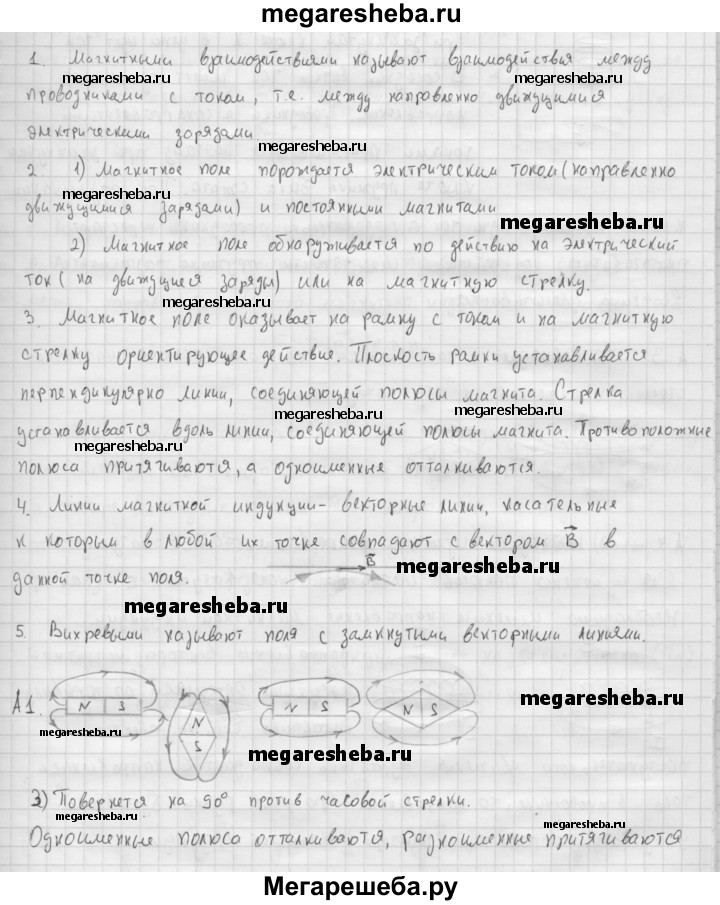 megaresheba.ru
1. Магнитными взаимодействиями называют взаимодействия между
megaresheba.ru megaresheba.ru
проводниками с током, т.е. между направленно движущимися
электрическими зарядами
megaresheba.ru
2 1) Магнитное поле порождается электрическим током (направленно
megaresheba.ru
движущимися зарядами) и постоянными магнитами
megaresheba.ru
2) Магнитное поле обнаруживается по действию на электрический
ток ( на движущиеся заряды) или на магнитную стрелку.
megaresheba.ru
3. Магнитное поле оказывает на рамку с током и на магнитную
стрелку ориентирующее действие. Плоскость рамки устанавливается
перпендикулярно линии, соединяющей полюсы магнита. Стрелка
megaresheba.ru megaresheba.ru
устанавливается вдоль линии, соединяющей полюсы магнита. Противоположные
megaresheba.ru
полюса притягиваются, а одноименные отталкиваются.
4. Линии магнитной индукции- векторные линии, касательные
к которым в любой их точке совпадают с вектором B⃗ в
данной точке поля. B⃗ megaresheba.ru
megaresheba.ru
5. Вихревыми называют поля с замкнутыми векторными линиями.
А1. N S N S N S N S
megaresheba.ru
megaresheba.ru
megaresheba.ru
3) Повернется на 90° против часовой стрелки.
megaresheba.ru megaresheba.ru
Одноименные полюса отталкиваются, разноименные притягиваются
Мегарешеба.ру